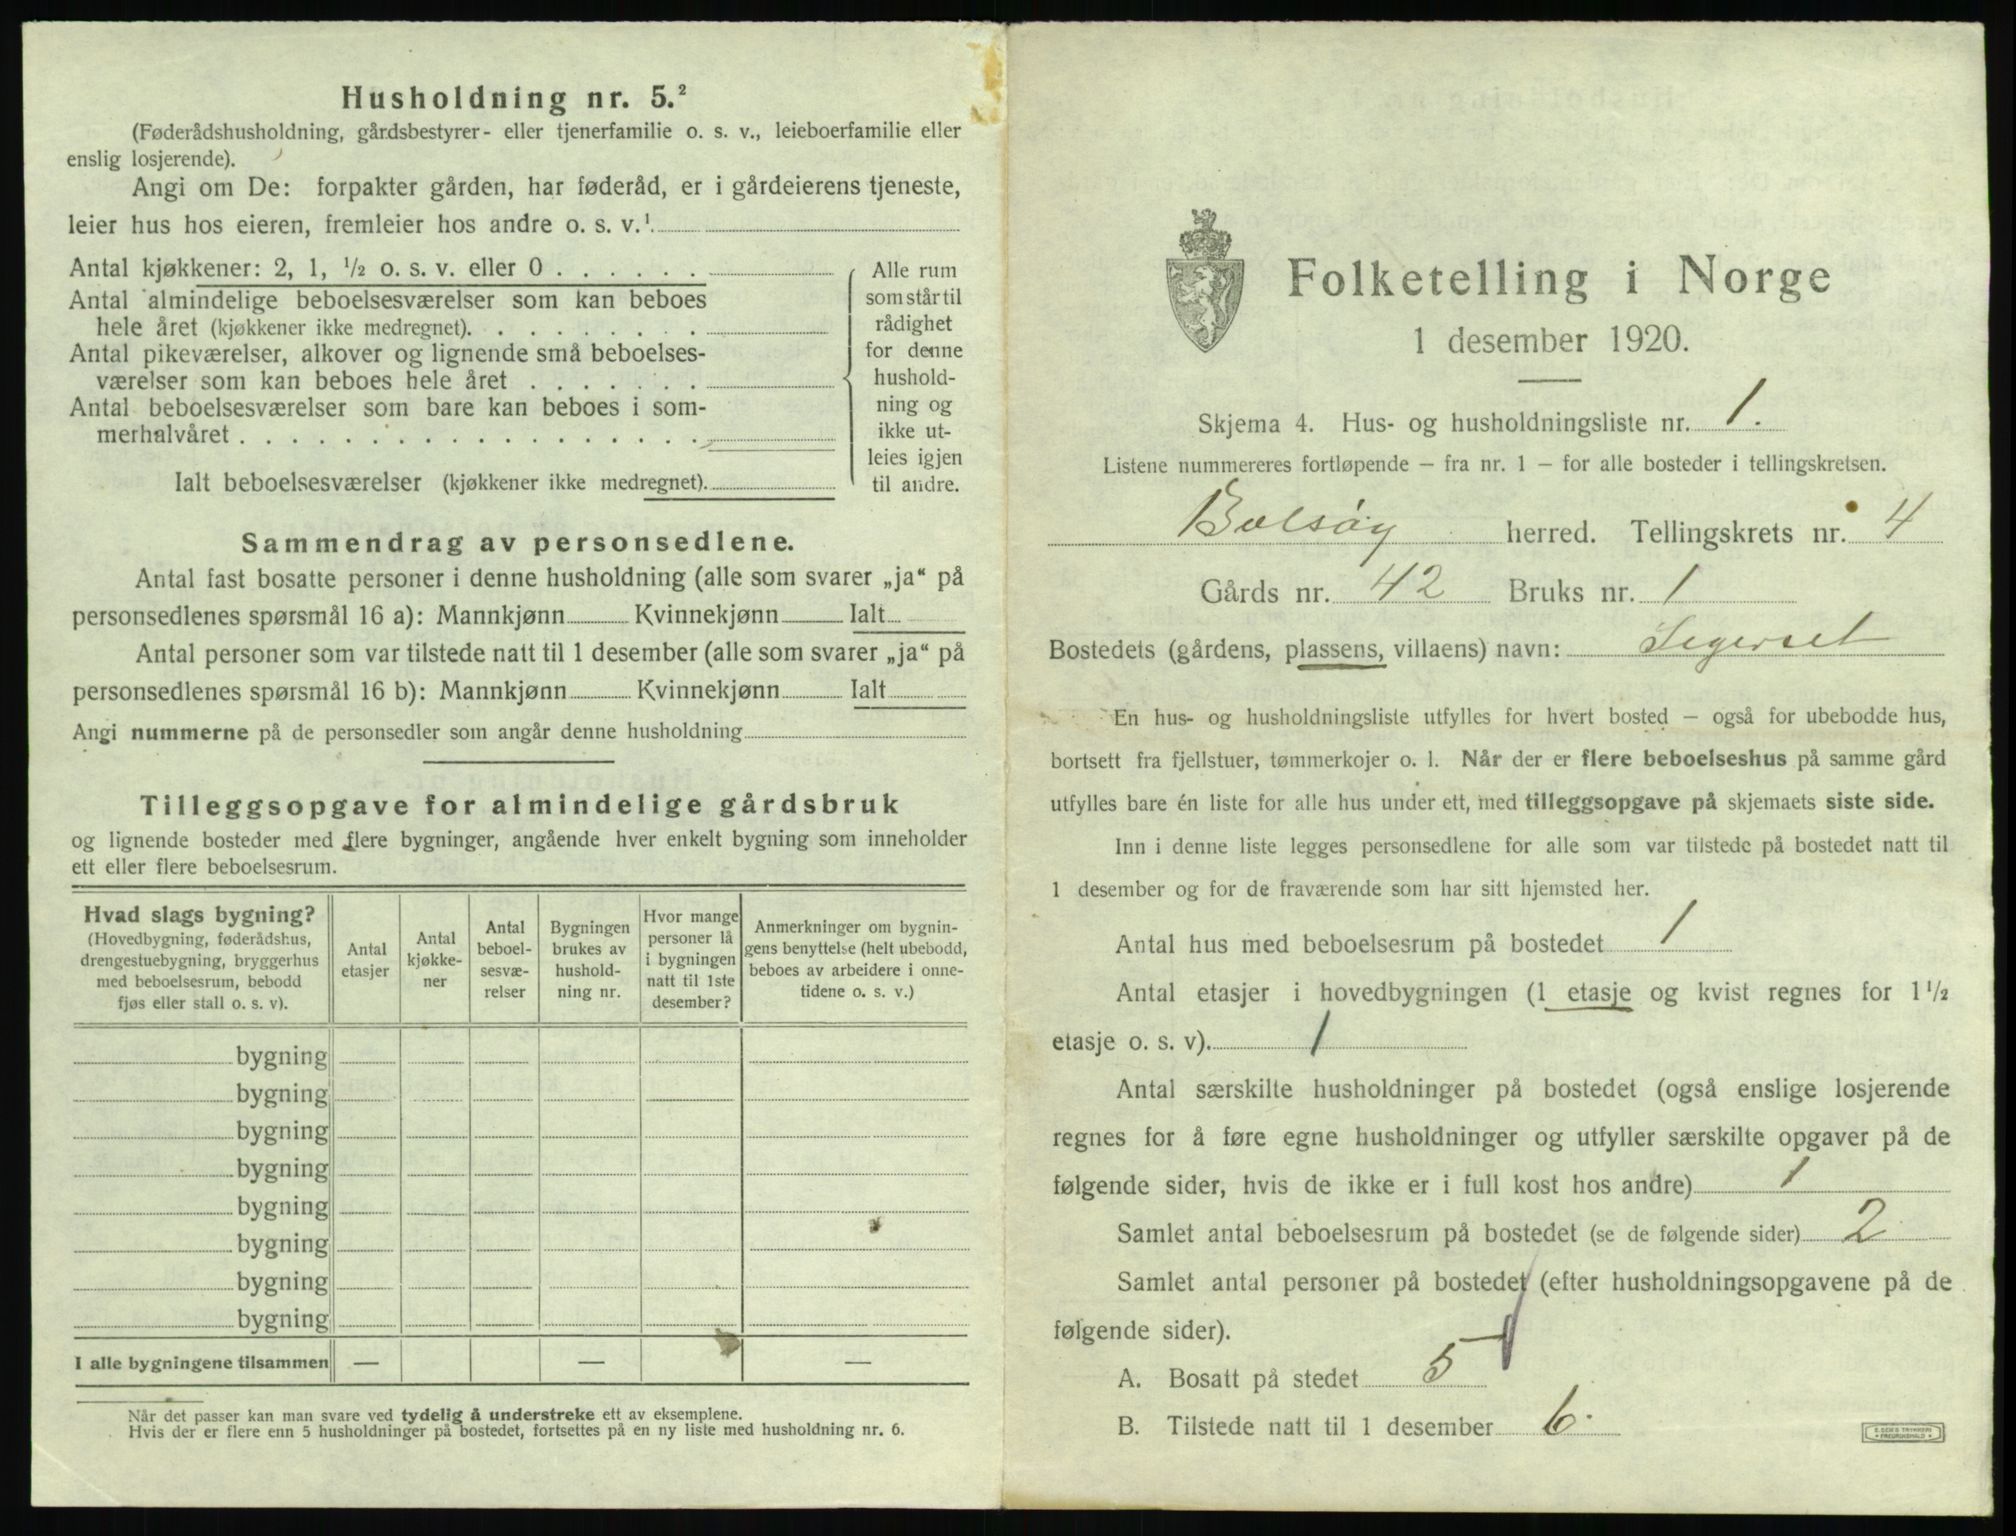 Husholdning nr. 5.²
(Føderådshusholdning, gårdsbestyrer- eller tjenerfamilie o. s. v., leieboerfamilie eller
enslig losjerende).
Angi om De: forpakter gården, har føderåd, er i gårdeierens tjeneste,
leier hus hos eieren, fremleier hos andre o. s. v.¹
Antal kjøkkener: 2, 1, ½ o. s. v. eller 0
Antal almindelige beboelsesværelser som kan beboes
hele året (kjøkkener ikke medregnet).
Antal pikeværelser, alkover og lignende små beboelses-
værelser som kan beboes hele året
Antal beboelsesværelser som bare kan beboes i som-
merhalvåret
Ialt beboelsesværelser (kjøkkener ikke medregnet).
Alle rum
som står til
rådighet
for denne
hushold-
ning og
ikke ut-
leies igjen
til andre.
Sammendrag av personsedlene.
Antal fast bosatte personer i denne husholdning (alle som svarer „ja“ på
personsedlenes spørsmål 16 a): Mannkjønn Kvinnekjønn Ialt
Antal personer som var tilstede natt til 1 desember (alle som svarer „ja“ på
personsedlenes spørsmål 16 b): Mannkjønn Kvinnekjønn Ialt
Angi nummerne på de personsedler som angår denne husholdning
Tilleggsopgave for almindelige gårdsbruk
og lignende bosteder med flere bygninger, angående hver enkelt bygning som inneholder
ett eller flere beboelsesrum.
Hvad slags bygning?
(Hovedbygning, føderådshus,
drengestuebygning, bryggerhus
med beboelsesrum, bebodd
fjøs eller stall o. s. v).
Antal
etasjer
Antal
kjøkke-
ner
Antal
beboel-
sesvæ-
relser
Bygningen
brukes av
hushold-
ning nr.
Hvor mange
personer lå
i bygningen
natt til 1ste
desember?
Anmerkninger om bygnin-
gens benyttelse (helt ubebodd,
beboes av arbeidere i onne-
tidene o. s. v.)
bygning
bygning
bygning
bygning
bygning
bygning
bygning
bygning
I alle bygningene tilsammen — — —
Når det passer kan man svare ved tydelig å understreke ett av eksemplene.
Hvis der er flere enn 5 husholdninger på bostedet, fortsettes på en ny liste med husholdning nr. 6.
Folketelling i Norge
1 desember 1920.
Skjema 4. Hus- og husholdningsliste nr. 1.
Listene nummereres fortløpende – fra nr. 1 – for alle bosteder i tellingskretsen.
Bolsøy herred. Tellingskrets nr. 4
Gårds nr. 42 Bruks nr. 1
Bostedets (gårdens, plassens, villaens) navn: Legerset
En hus- og husholdningsliste utfylles for hvert bosted – også for ubebodde hus,
bortsett fra fjellstuer, tømmerkojer o. l. Når der er flere beboelseshus på samme gård
utfylles bare én liste for alle hus under ett, med tilleggsopgave på skjemaets siste side.
Inn i denne liste legges personsedlene for alle som var tilstede på bostedet natt til
1 desember og for de fraværende som har sitt hjemsted her.
Antal hus med beboelsesrum på bostedet 1
Antal etasjer i hovedbygningen (1 etasje og kvist regnes for 1½
etasje o. s. v). 1
Antal særskilte husholdninger på bostedet (også enslige losjerende
regnes for å føre egne husholdninger og utfyller særskilte opgaver på de
følgende sider, hvis de ikke er i full kost hos andre) 1
Samlet antal beboelsesrum på bostedet (se de følgende sider) 2
Samlet antal personer på bostedet (efter husholdningsopgavene på de
følgende sider).
A. Bosatt på stedet 5
B. Tilstede natt til 1 desember 6.